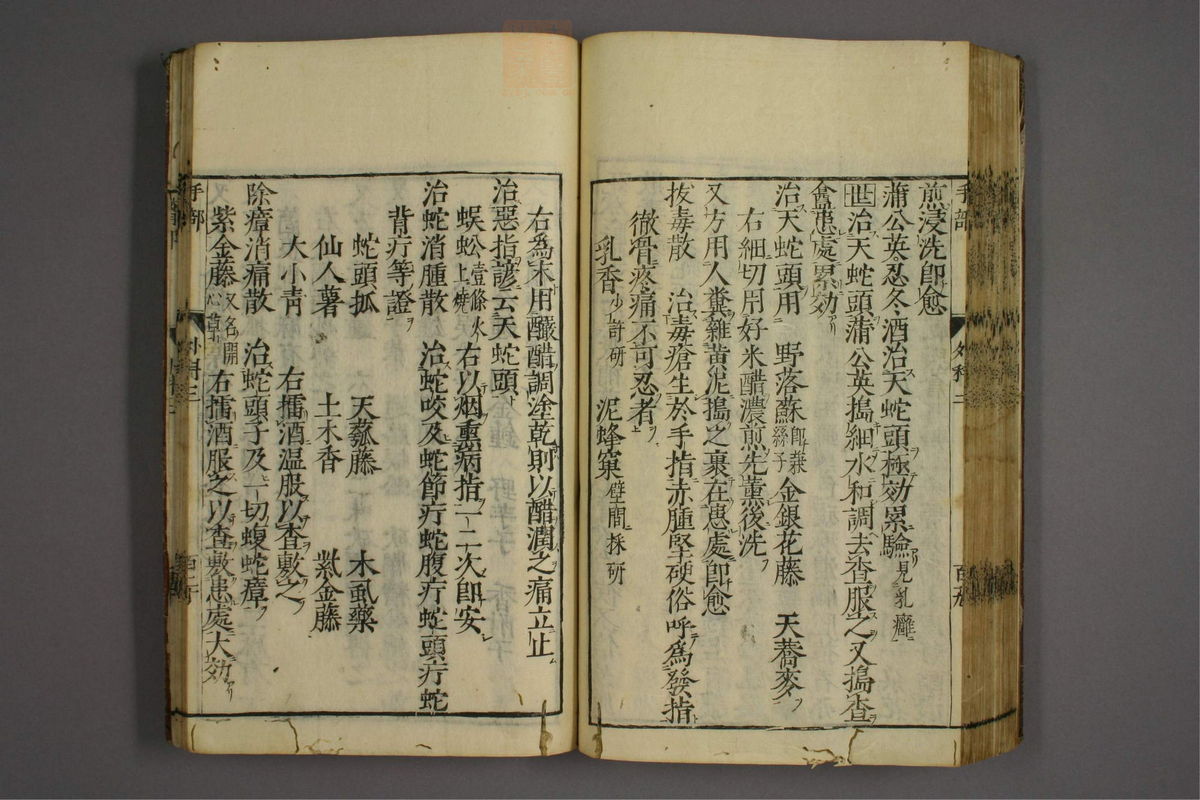 煎浸洗即愈
蒲公英忍冬酒治天蛇頭極効累驗見乳癰
世治天蛇頭蒲公英搗細水和調去査服之又搗査
盦患處累効
治天蛇頭用 野落蘇即兼絲子金銀花藤 天蕎麥
右細切用好米醋濃煎先薰後洗
又方用人糞雜黃泥搗之裹在患處即愈
拔毒散 治毒瘡生於手指赤腫堅硬俗呼為發指
徹骨疼痛不可忍者
乳香少許研 泥蜂窠壁間採研
右為末用釅醋調塗乾則以醋潤之痛立止
治惡指諺云天蛇頭
蜈蚣壹條火上燒右以烟熏病指一二次即安
治蛇消腫散 治蛇咬及蛇節疔蛇腹疔蛇頭疔蛇
背疔等證
蛇頭孤 天蓏藤 木虱藥
仙人薯 土木香 紫金藤
大小靑 右擂酒温服以査敷之
除瘴消痛散 治蛇頭子及一切蝮蛇瘴
紫金藤又名開心草右擂酒服之以査敷患處大効
手部 外科三
外科三